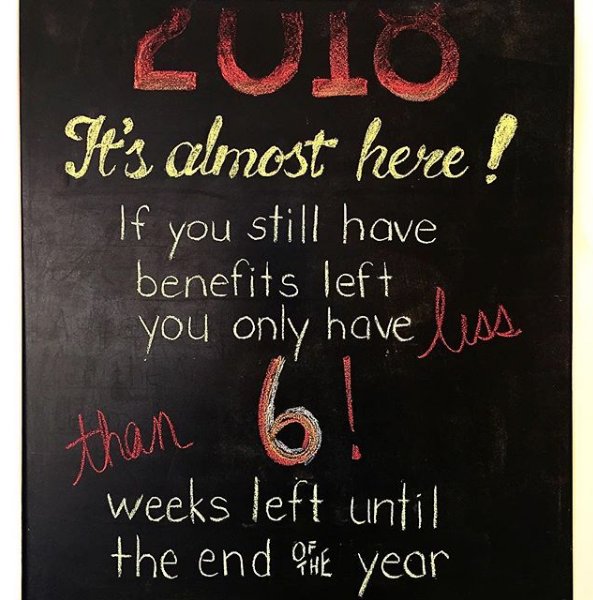 2018
It's almost here!
If you still have
benefits left
you only have less
than 6!
weeks left until
the end OF THE year